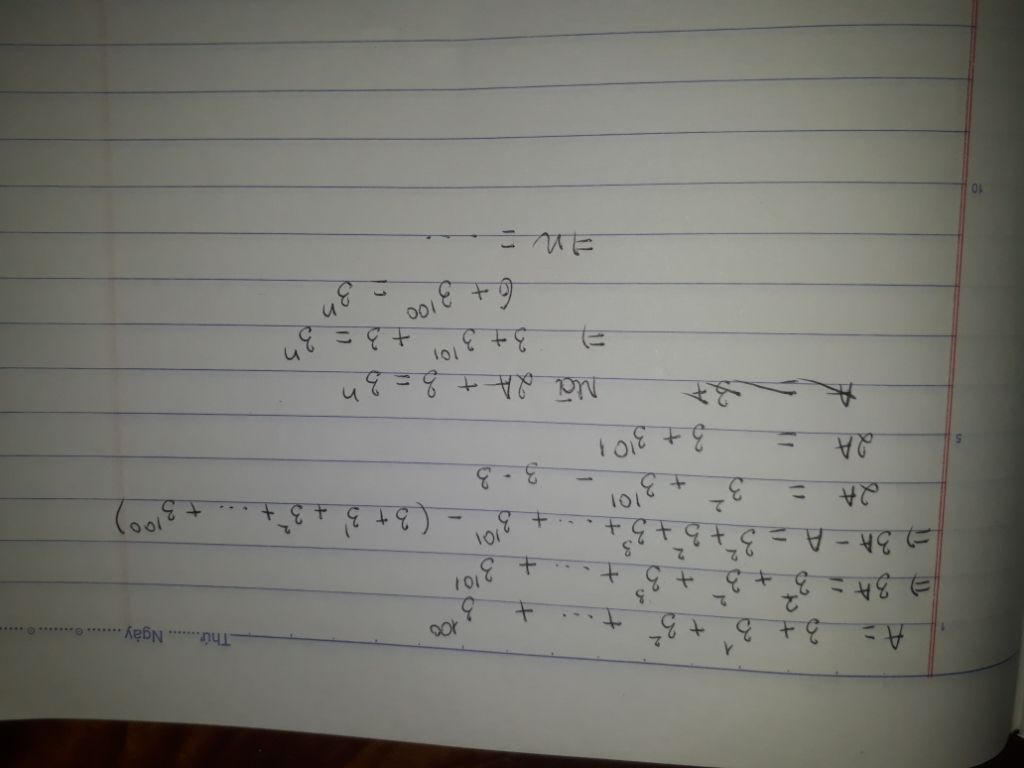 Thứ ........ Ngày ........
A = 3 + 3¹ + 3² + ... + 3¹⁰⁰
=) 3A = 3² + 3² + 3³ + ... + 3¹⁰¹
=) 3A - A = 3² + 3² + 3³ + ... + 3¹⁰¹ - (3 + 3¹ + 3² + ... + 3¹⁰⁰)
2A = 3² + 3¹⁰¹ - 3 - 3
2A = 3 + 3¹⁰¹
Mà 2A + 3 = 3ⁿ
=) 3 + 3¹⁰¹ + 3 = 3ⁿ
6 + 3¹⁰⁰ = 3ⁿ
=) n = ...
1
5
10